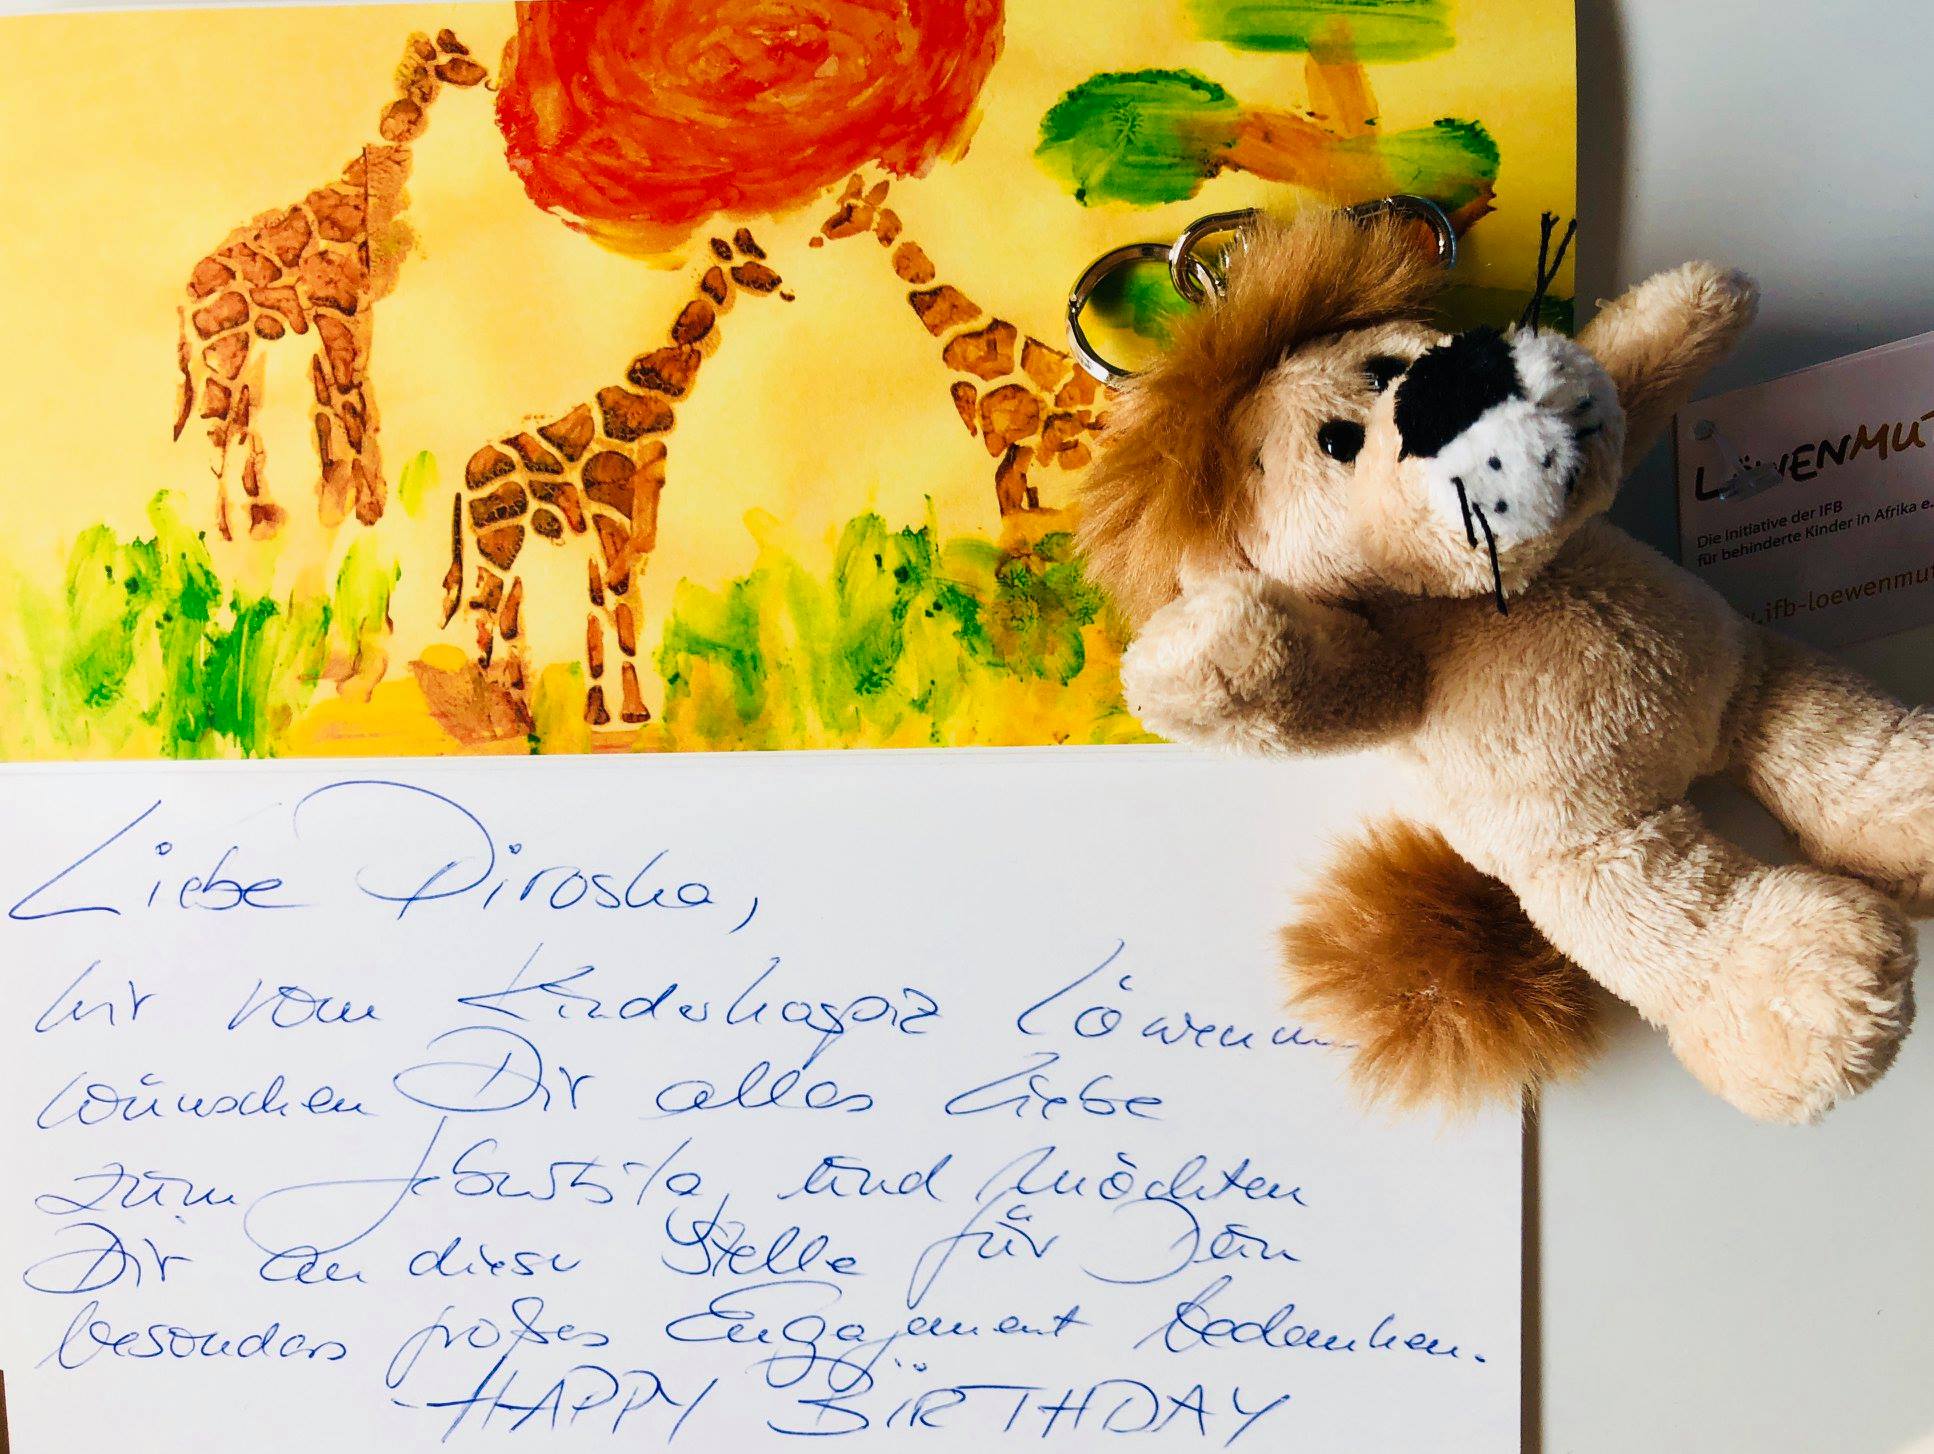 Liebe Piroska,
wir vom Kinderhospiz Löwenm
wünschen Dir alles Liebe
zum Geburtstag und möchten
Dir an dieser Stelle für Dein
besonders großes Engagement bedanken.
HAPPY BIRTHDAY
LÖWENMUT
Die Initiative der IFB
für behinderte Kinder in Afrika e.
.ifb-loewenmut